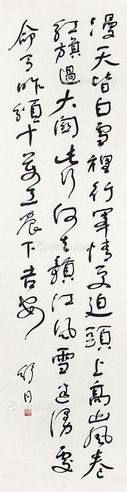 漫天皆白雪裡行軍情更迫頭上高山風卷
紅旗過大關此行何去贛江風雪迷漫處
命令昨頒十萬工農下吉安 舒同